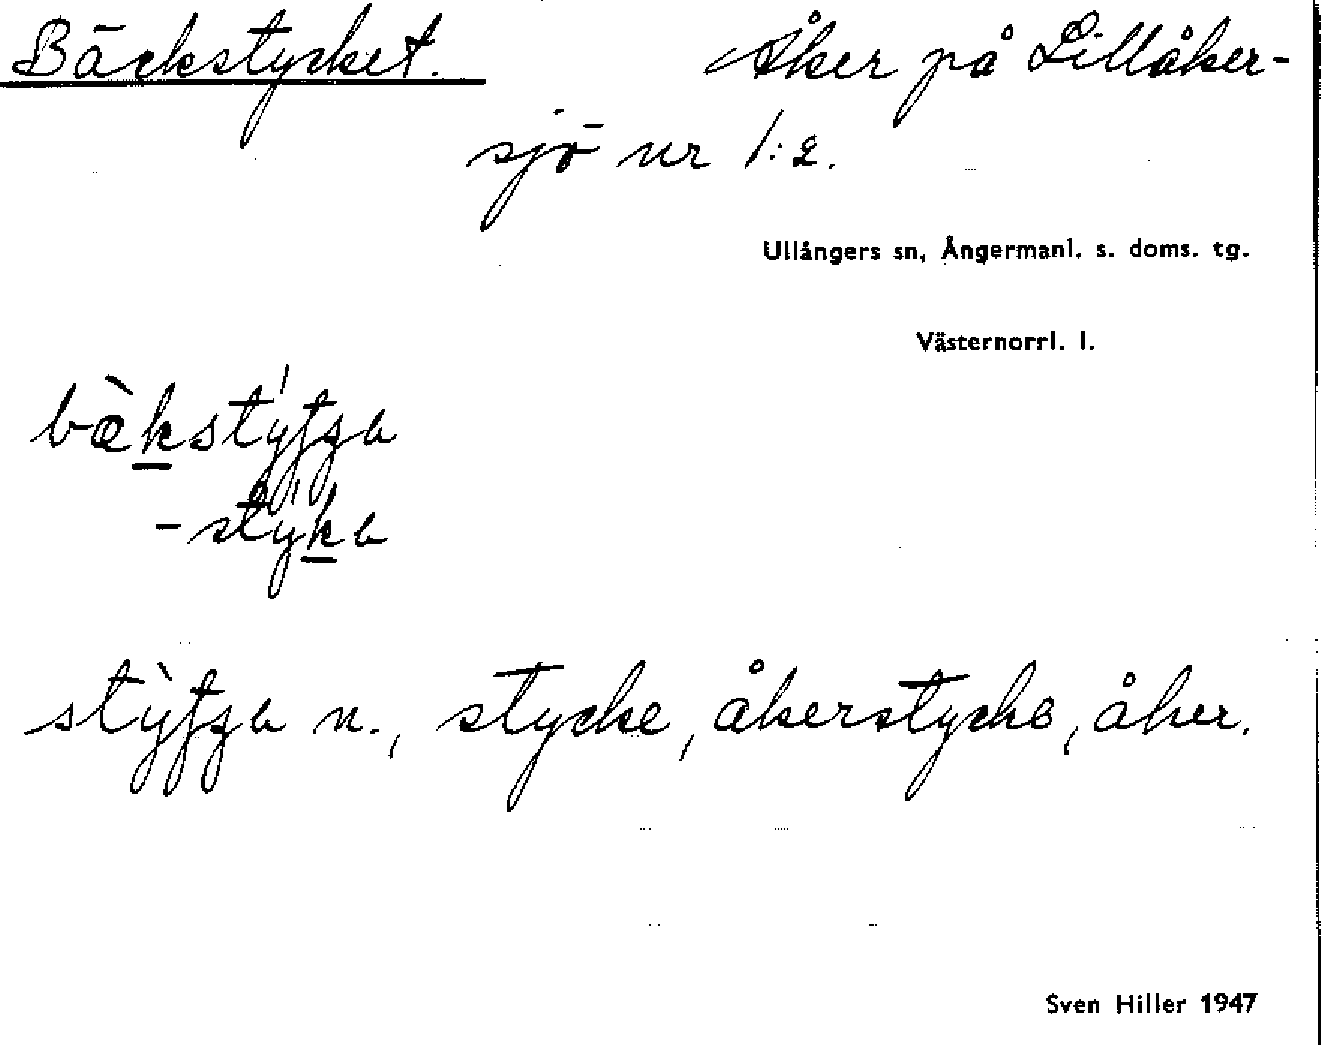 Bäckstycket. Åker på Lillåker-
sjö nr 1:2.
Ullångers sn, Ångermanl. s. doms. tg.
Västernorrl. l.
-styka
n., stycke, åkerstycke, åker.
Sven Hiller 1947